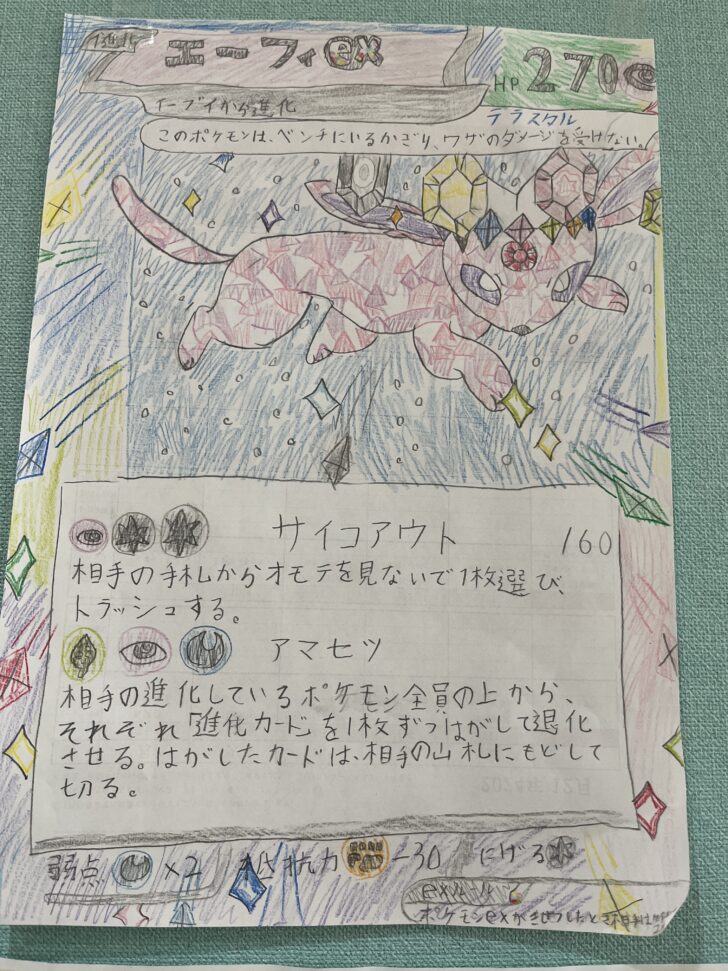 1進化
エーフィex
HP 270
イーブイから進化
テラスタル
このポケモンは、ベンチにいるかぎり、ワザのダメージを受けない。
サイコアウト 160
相手の手札からオモテを見ないで1枚選び、
トラッシュする。
アマセツ
相手の進化しているポケモン全員の上から、
それぞれ「進化カード」を1枚ずつはがして退化
させる。はがしたカードは、相手の山札にもどして
切る。
弱点 ×2 抵抗力 -30 にげる
exルール
ポケモンexが